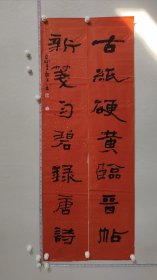 古紙硬黃臨晉帖
新箋勻碧錄唐詩